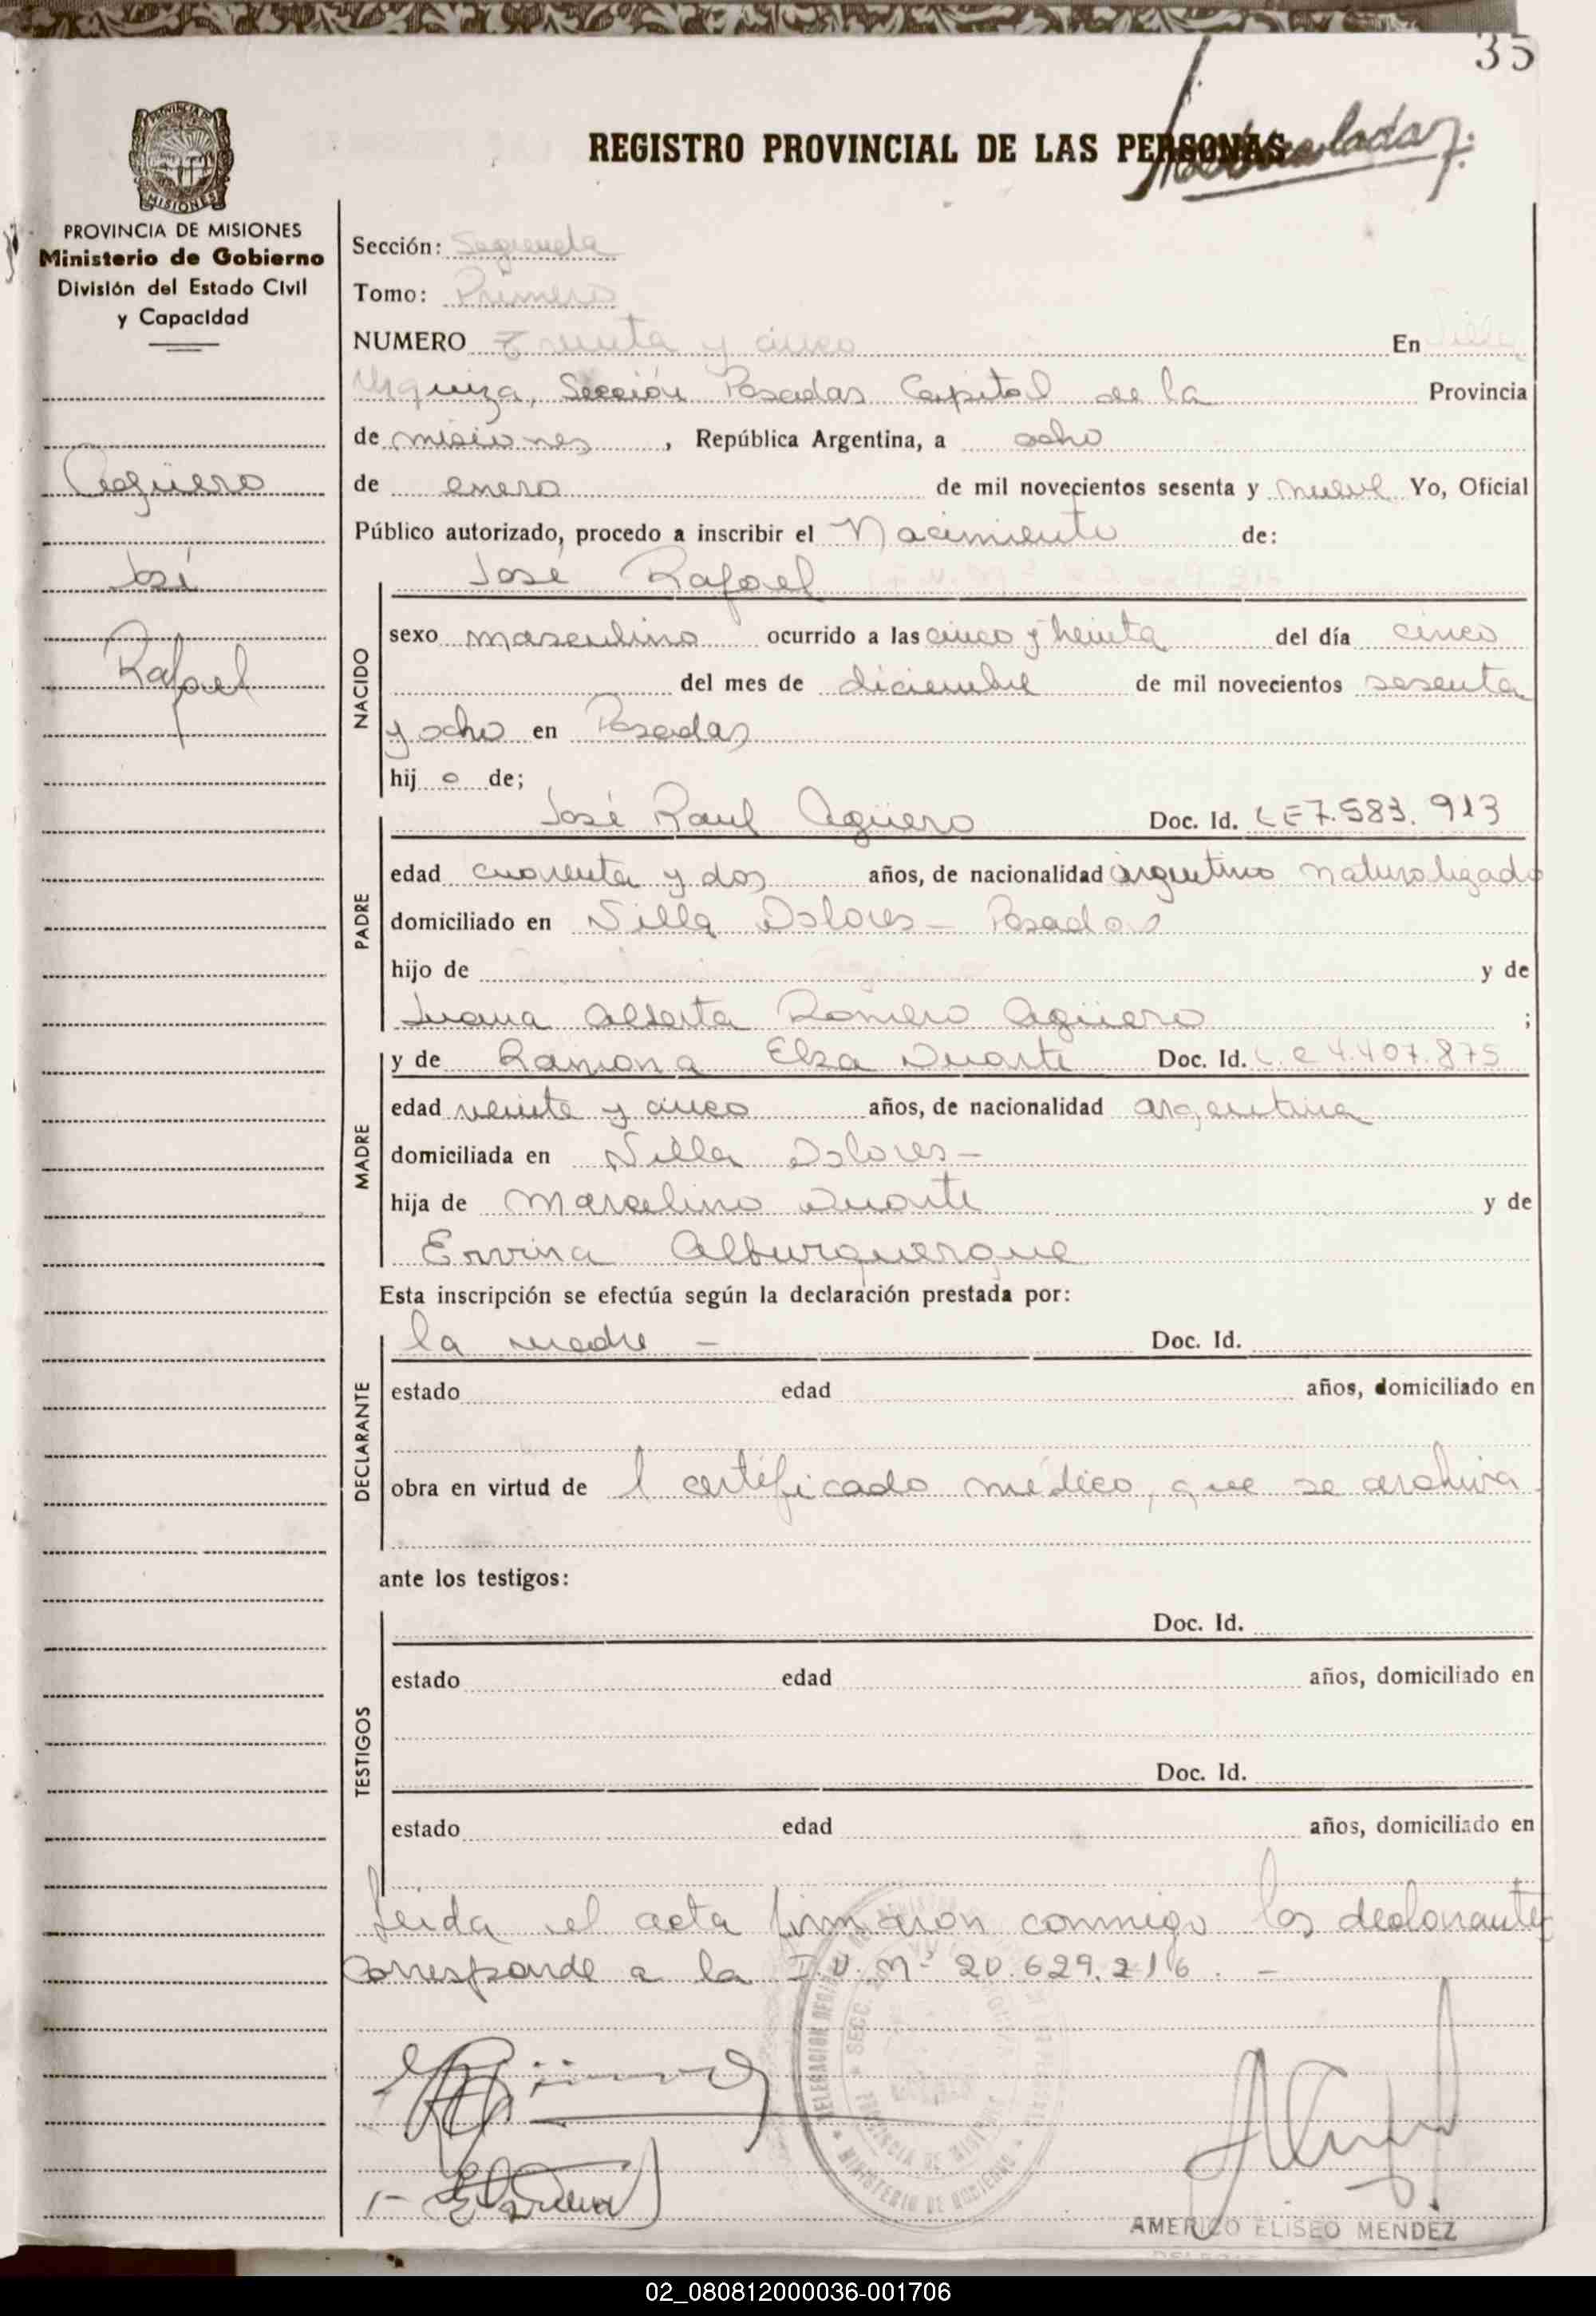 35
REGISTRO PROVINCIAL DE LAS PERSONAS
PROVINCIA DE MISIONES
Ministerio de Gobierno
División del Estado Civil
y Capacidad
Agüero
José
Rafael
Sección: Segunda
Tomo: Primero
NUMERO Treinta y cinco En Villa
Urquiza, Sección Posadas Capital de la Provincia
de misiones, República Argentina, a ocho
de enero de mil novecientos sesenta y nueve Yo, Oficial
Público autorizado, procedo a inscribir el Nacimiento de:
NACIDO
Jose Rafael
sexo masculino ocurrido a las cinco y treinta del día cinco
del mes de diciembre de mil novecientos sesenta
y ocho en Posadas
hijo de;
PADRE
José Raul Agüero Doc. Id. LE 7.583.913
edad cuarenta y dos años, de nacionalidad argentino naturalizado
domiciliado en Villa Dolores - Posadas
hijo de y de
Juana Alberta Romero Agüero ;
MADRE
y de Ramona Elsa Duarte Doc. Id. L.C 4.407.875
edad veinte y cinco años, de nacionalidad argentina
domiciliada en Villa Dolores -
hija de Marcelino Duarte y de
Ervina Alburquerque
Esta inscripción se efectúa según la declaración prestada por:
DECLARANTE
la madre - Doc. Id.
estado edad años, domiciliado en
obra en virtud de 1 certificado médico, que se archiva
ante los testigos:
TESTIGOS
Doc. Id.
estado edad años, domiciliado en
Doc. Id.
estado edad años, domiciliado en
Leida el acta firmaron conmigo los declarantes
Corresponde a la I.U. Nº 20.629.216. -
MINISTERIO DE GOBIERNO
PROVINCIA DE MISIONES
AMERICO ELISEO MENDEZ
02_080812000036-001706